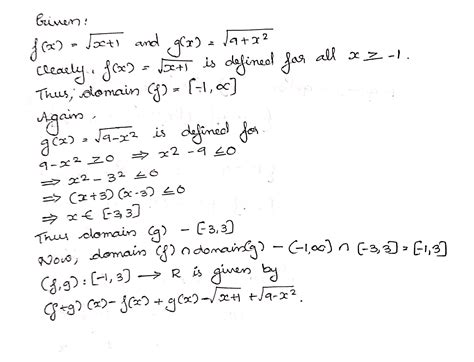 Given:
f(x) = √x+1 and g(x) = √9+x²
Clearly, f(x) = √x+1 is defined for all x ≥ -1.
Thus, domain (f) = [-1, ∞]
Again,
g(x) = √9-x² is defined for
9-x² ≥0 ⇒ x²-9 ≤0
⇒ x²-3² ≤0
⇒ (x+3)(x-3) ≤0
⇒ x ∈ [-3,3]
Thus domain (g) - [-3,3]
Now, domain (f) ∩ domain(g) - (-1,∞] ∩ [-3,3] = [-1,3]
(f,g) : [-1,3] → R is given by
(f+g)(x)-f(x)+g(x)-√x+1 +√9-x².